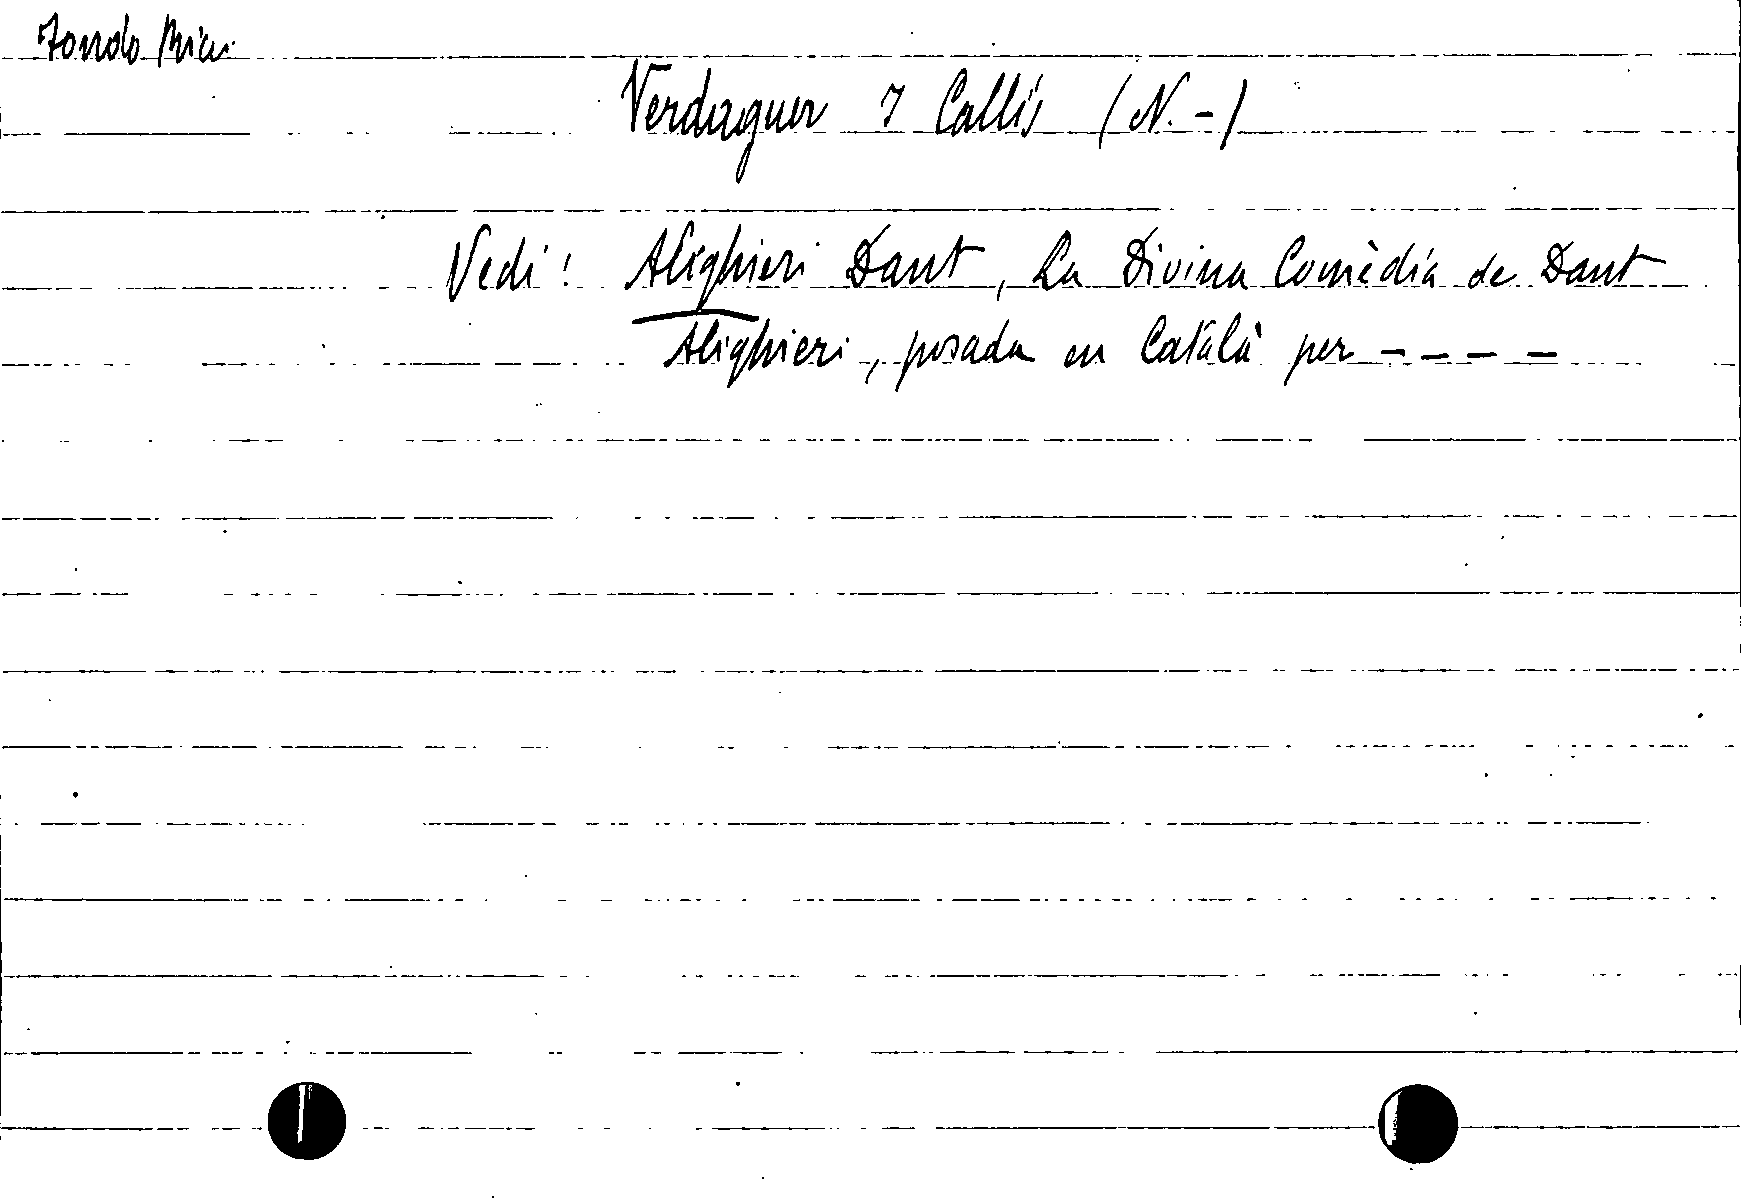 Fondo
Verdaguer I Callís (N. -)
Vedi: Alighieri Dant, La Divina Comèdia de Dant
Alighieri, posada en Català per - - - -